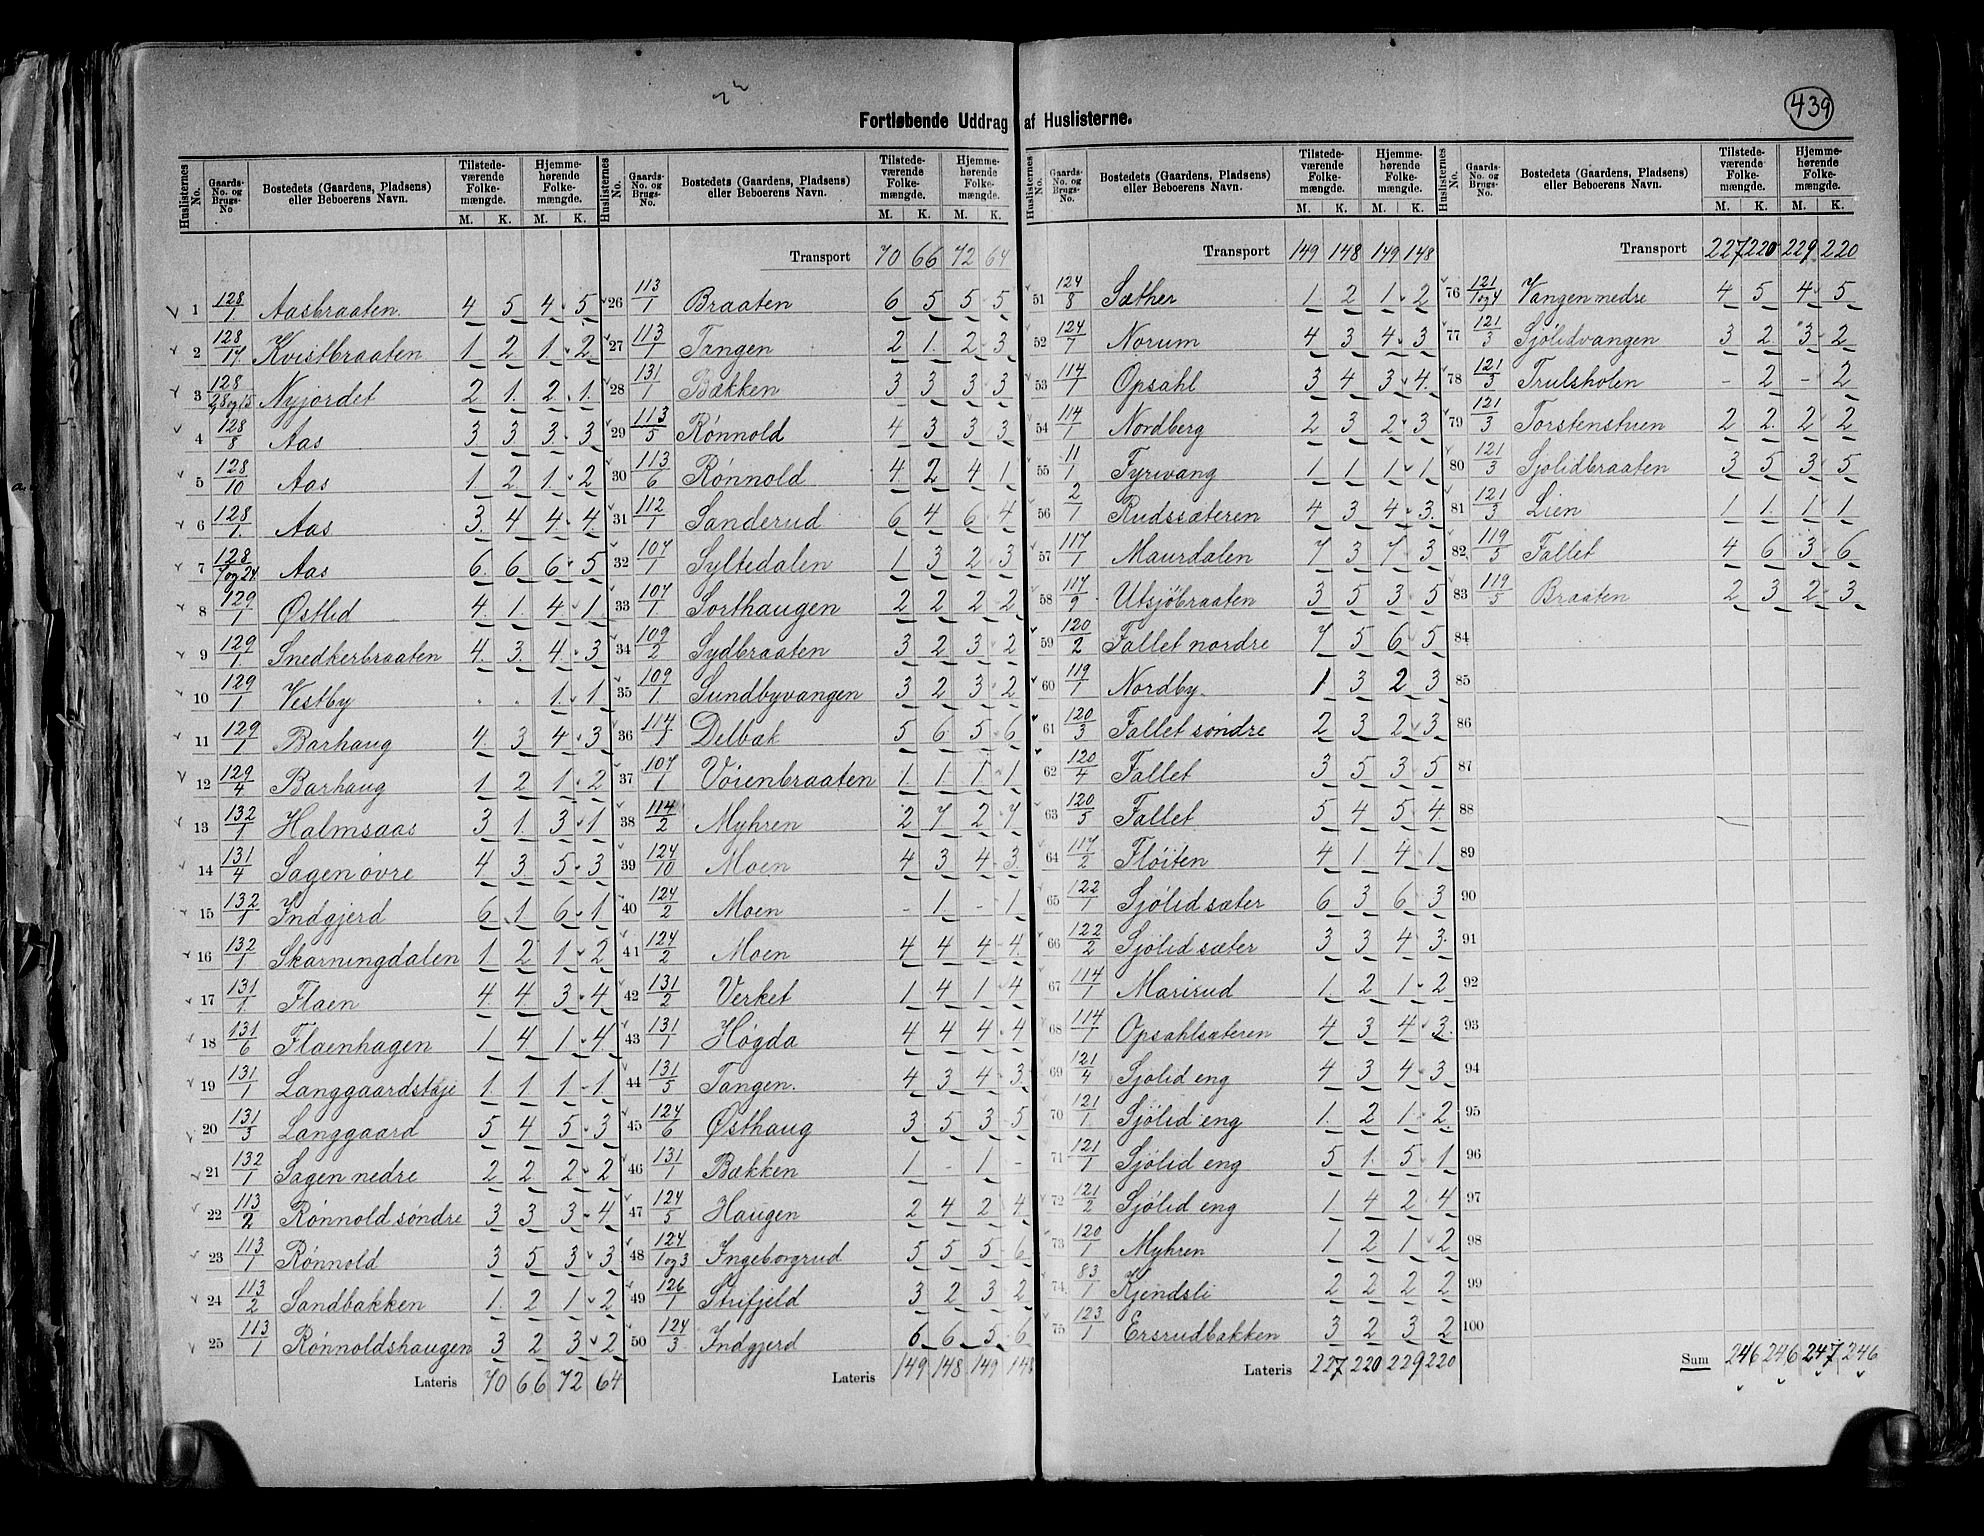 439
Fortløbende Uddrag af Huslisterne.
Huslisternes No. Gaards-No. og Brugs-No. Bostedets (Gaardens, Pladsens) eller Beboerens Navn. Tilstedeværende Folkemængde. M. K. Hjemmehørende Folkemængde. M. K.
1 128/1 Aasbraaten. 4 5 4 5
2 128/17 Kvistbraaten 1 2 1 2
3 128/28og13 Nyjordet 2 1 2 1
4 128/8 Aas 3 3 3 3
5 128/10 Aas 1 2 1 2
6 128/1 Aas 3 4 4 4
7 128/7og24 Aas 6 6 6 5
8 129/1 Østlid 4 1 4 1
9 129/1 Snedkerbraaten 4 3 4 3
10 129/1 Vestby . . 1 1
11 129/1 Barhaug 4 3 4 3
12 129/4 Barhaug 1 2 1 2
13 132/1 Halmsaas 3 1 3 1
14 131/4 Sagen övre 4 3 5 3
15 132/1 Indgjerd 6 1 6 1
16 132/1 Skarningdalen 1 2 1 2
17 131/1 Flaen 4 4 3 4
18 131/6 Flaenhagen 1 4 1 4
19 131/1 Langgaardstøje 1 1 1 1
20 131/3 Langgaard 5 4 5 3
21 132/1 Sagen nedre 2 2 2 2
22 113/2 Rønnold søndre 3 3 3 4
23 113/1 Rønnold 3 5 3 3
24 113/2 Sandbakken 1 2 1 2
25 113/1 Rønnoldshaugen 3 2 3 2
Lateris 70 66 72 64
Huslisternes No. Gaards-No. og Brugs-No. Bostedets (Gaardens, Pladsens) eller Beboerens Navn. Tilstedeværende Folkemængde. M. K. Hjemmehørende Folkemængde. M. K.
Transport 70 66 72 64
26 113/1 Braaten 6 5 5 5
27 113/1 Tangen 2 1 2 3
28 131/1 Bækken 3 3 3 3
29 113/5 Rønnold 4 3 3 3
30 113/6 Rønnold 4 2 4 1
31 112/1 Sanderud 6 4 6 4
32 107/1 Syltedalen 1 3 2 3
33 107/1 Sorthaugen 2 2 2 2
34 109/2 Sydbraaten 3 2 3 2
35 109/1 Sundbyvangen 3 2 3 2
36 114/1 Delbak 5 6 5 6
37 107/1 Voienbraaten 1 1 1 1
38 114/2 Myhren 2 7 2 7
39 124/10 Moen 4 3 4 3
40 124/2 Moen - 1 - 1
41 124/2 Moen 4 4 4 4
42 131/2 Verket 1 4 1 4
43 131/1 Høgda 4 4 4 4
44 131/5 Tangen. 4 3 4 3
45 124/6 Østhaug 3 5 3 5
46 131/1 Bækken 1 - 1 -
47 124/5 Haugen 2 4 2 4
48 124/1og3 Ingeborgrud 5 5 5 6
49 126/1 Stufjeld 3 2 3 2
50 124/3 Indgjerd 6 6 5 6
Lateris 149 148 149 148
Huslisternes No. Gaards-No. og Brugs-No. Bostedets (Gaardens, Pladsens) eller Beboerens Navn. Tilstedeværende Folkemængde. M. K. Hjemmehørende Folkemængde. M. K.
Transport 149 148 149 148
51 124/8 Sæther 1 2 1 2
52 124/7 Norum 4 3 4 3
53 114/1 Opsahl 3 4 3 4
54 114/1 Nordberg 2 3 2 3
55 11/1 Fyrivang 1 1 1 1
56 2/1 Rudssæteren 4 3 4 3
57 117/1 Maurdalen 7 3 7 3
58 117/9 Utsjöbraaten 3 5 3 5
59 120/2 Fallet nordre 7 5 6 5
60 119/1 Nordby 1 3 2 3
61 120/3 Fallet søndre 2 3 2 3
62 120/4 Fallet 3 5 3 5
63 120/5 Fallet 5 4 5 4
64 117/2 Fløiten 4 1 4 1
65 122/1 Sjölid sæter 6 3 6 3
66 122/2 Sjölid sæter 3 3 4 3
67 114/1 Marirud 1 2 1 2
68 114/1 Opsahlsateren 4 3 4 3
69 121/4 Sjolid eng 4 3 4 3
70 121/1 Sjölid eng 1 2 1 2
71 121/1 Sjölid eng 5 1 5 1
72 121/2 Sjölid eng 1 4 2 4
73 120/1 Myhren 1 2 1 2
74 83/1 Kjendsli 2 2 2 2
75 123/1 Ersrudbakken 3 2 3 2
Lateris 227 220 229 220
Huslisternes No. Gaards-No. og Brugs-No. Bostedets (Gaardens, Pladsens) eller Beboerens Navn. Tilstedeværende Folkemængde. M. K. Hjemmehørende Folkemængde. M. K.
Transport 227 220 229 220
76 121/1og4 Vangen nedre 4 5 4 5
77 121/3 Sjölidvangen 3 2 3 2
78 121/3 Trulsholen - 2 - 2
79 121/3 Torstenstuen 2 2 2 2
80 121/3 Sjolidbraaten 3 5 3 5
81 121/3 Lien 1 1 1 1
82 119/5 Fallet 4 6 3 6
83 119/5 Braaten 2 3 2 3
84
85
86
87
88
89
90
91
92
93
94
95
96
97
98
99
100
Sum 246 246 247 246